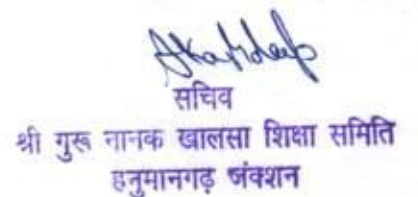 सचिव
श्री गुरू नानक खालसा शिक्षा समिति
हनुमानगढ़ जंक्शन